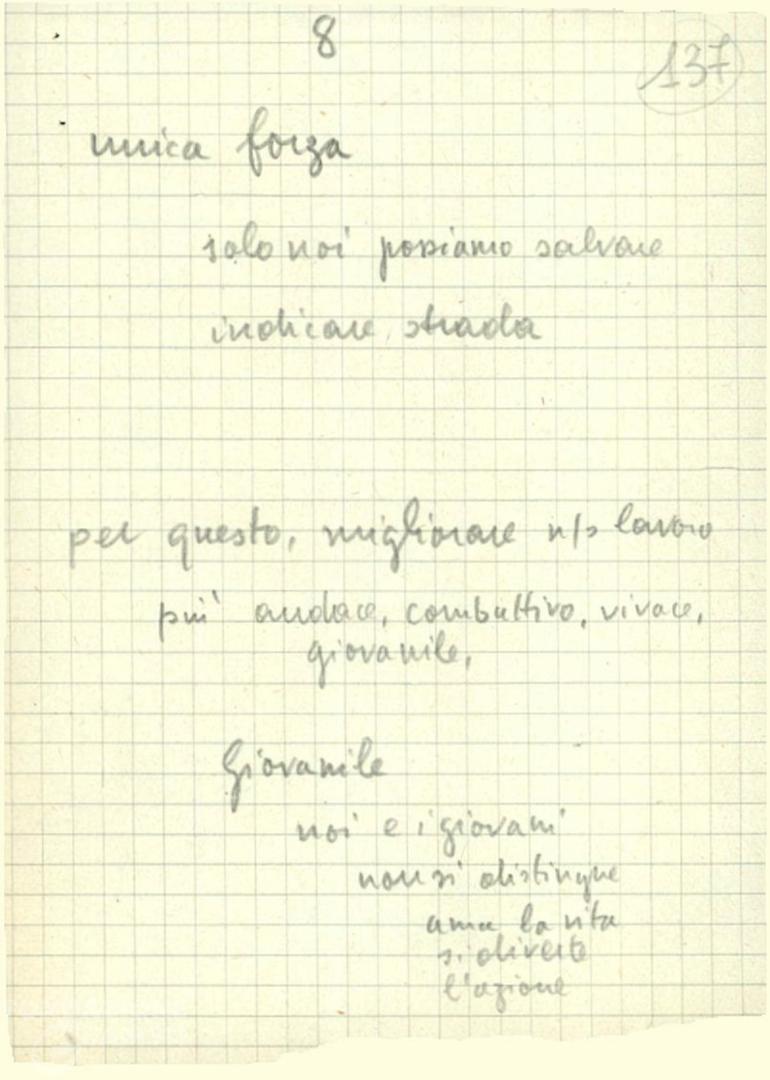 8
137
unica forza
solo noi possiamo salvare
indicare strada
per questo, migliorare n/s lavoro
più audace, combattivo, vivace,
giovanile,
Giovanile
noi e i giovani
non si distingue
ama la vita
si diverte
l'azione